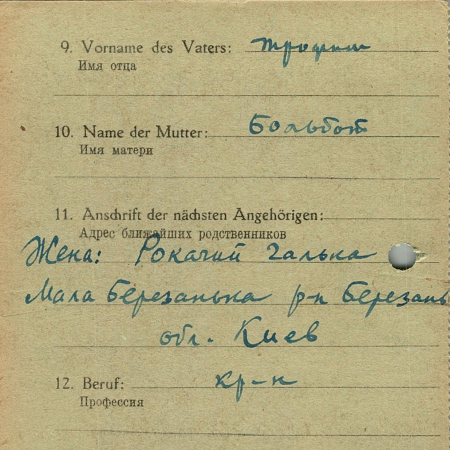 9. Vorname des Vaters: Трофим
Имя отца
10. Name der Mutter: Больбот
Имя матери
11. Anschrift der nächsten Angehörigen:
Адрес ближайших родственников
Жена: Рокачий Галька
Мала Березанька р-н Березань
обл. Киев
12. Beruf: кр-н
Профессия